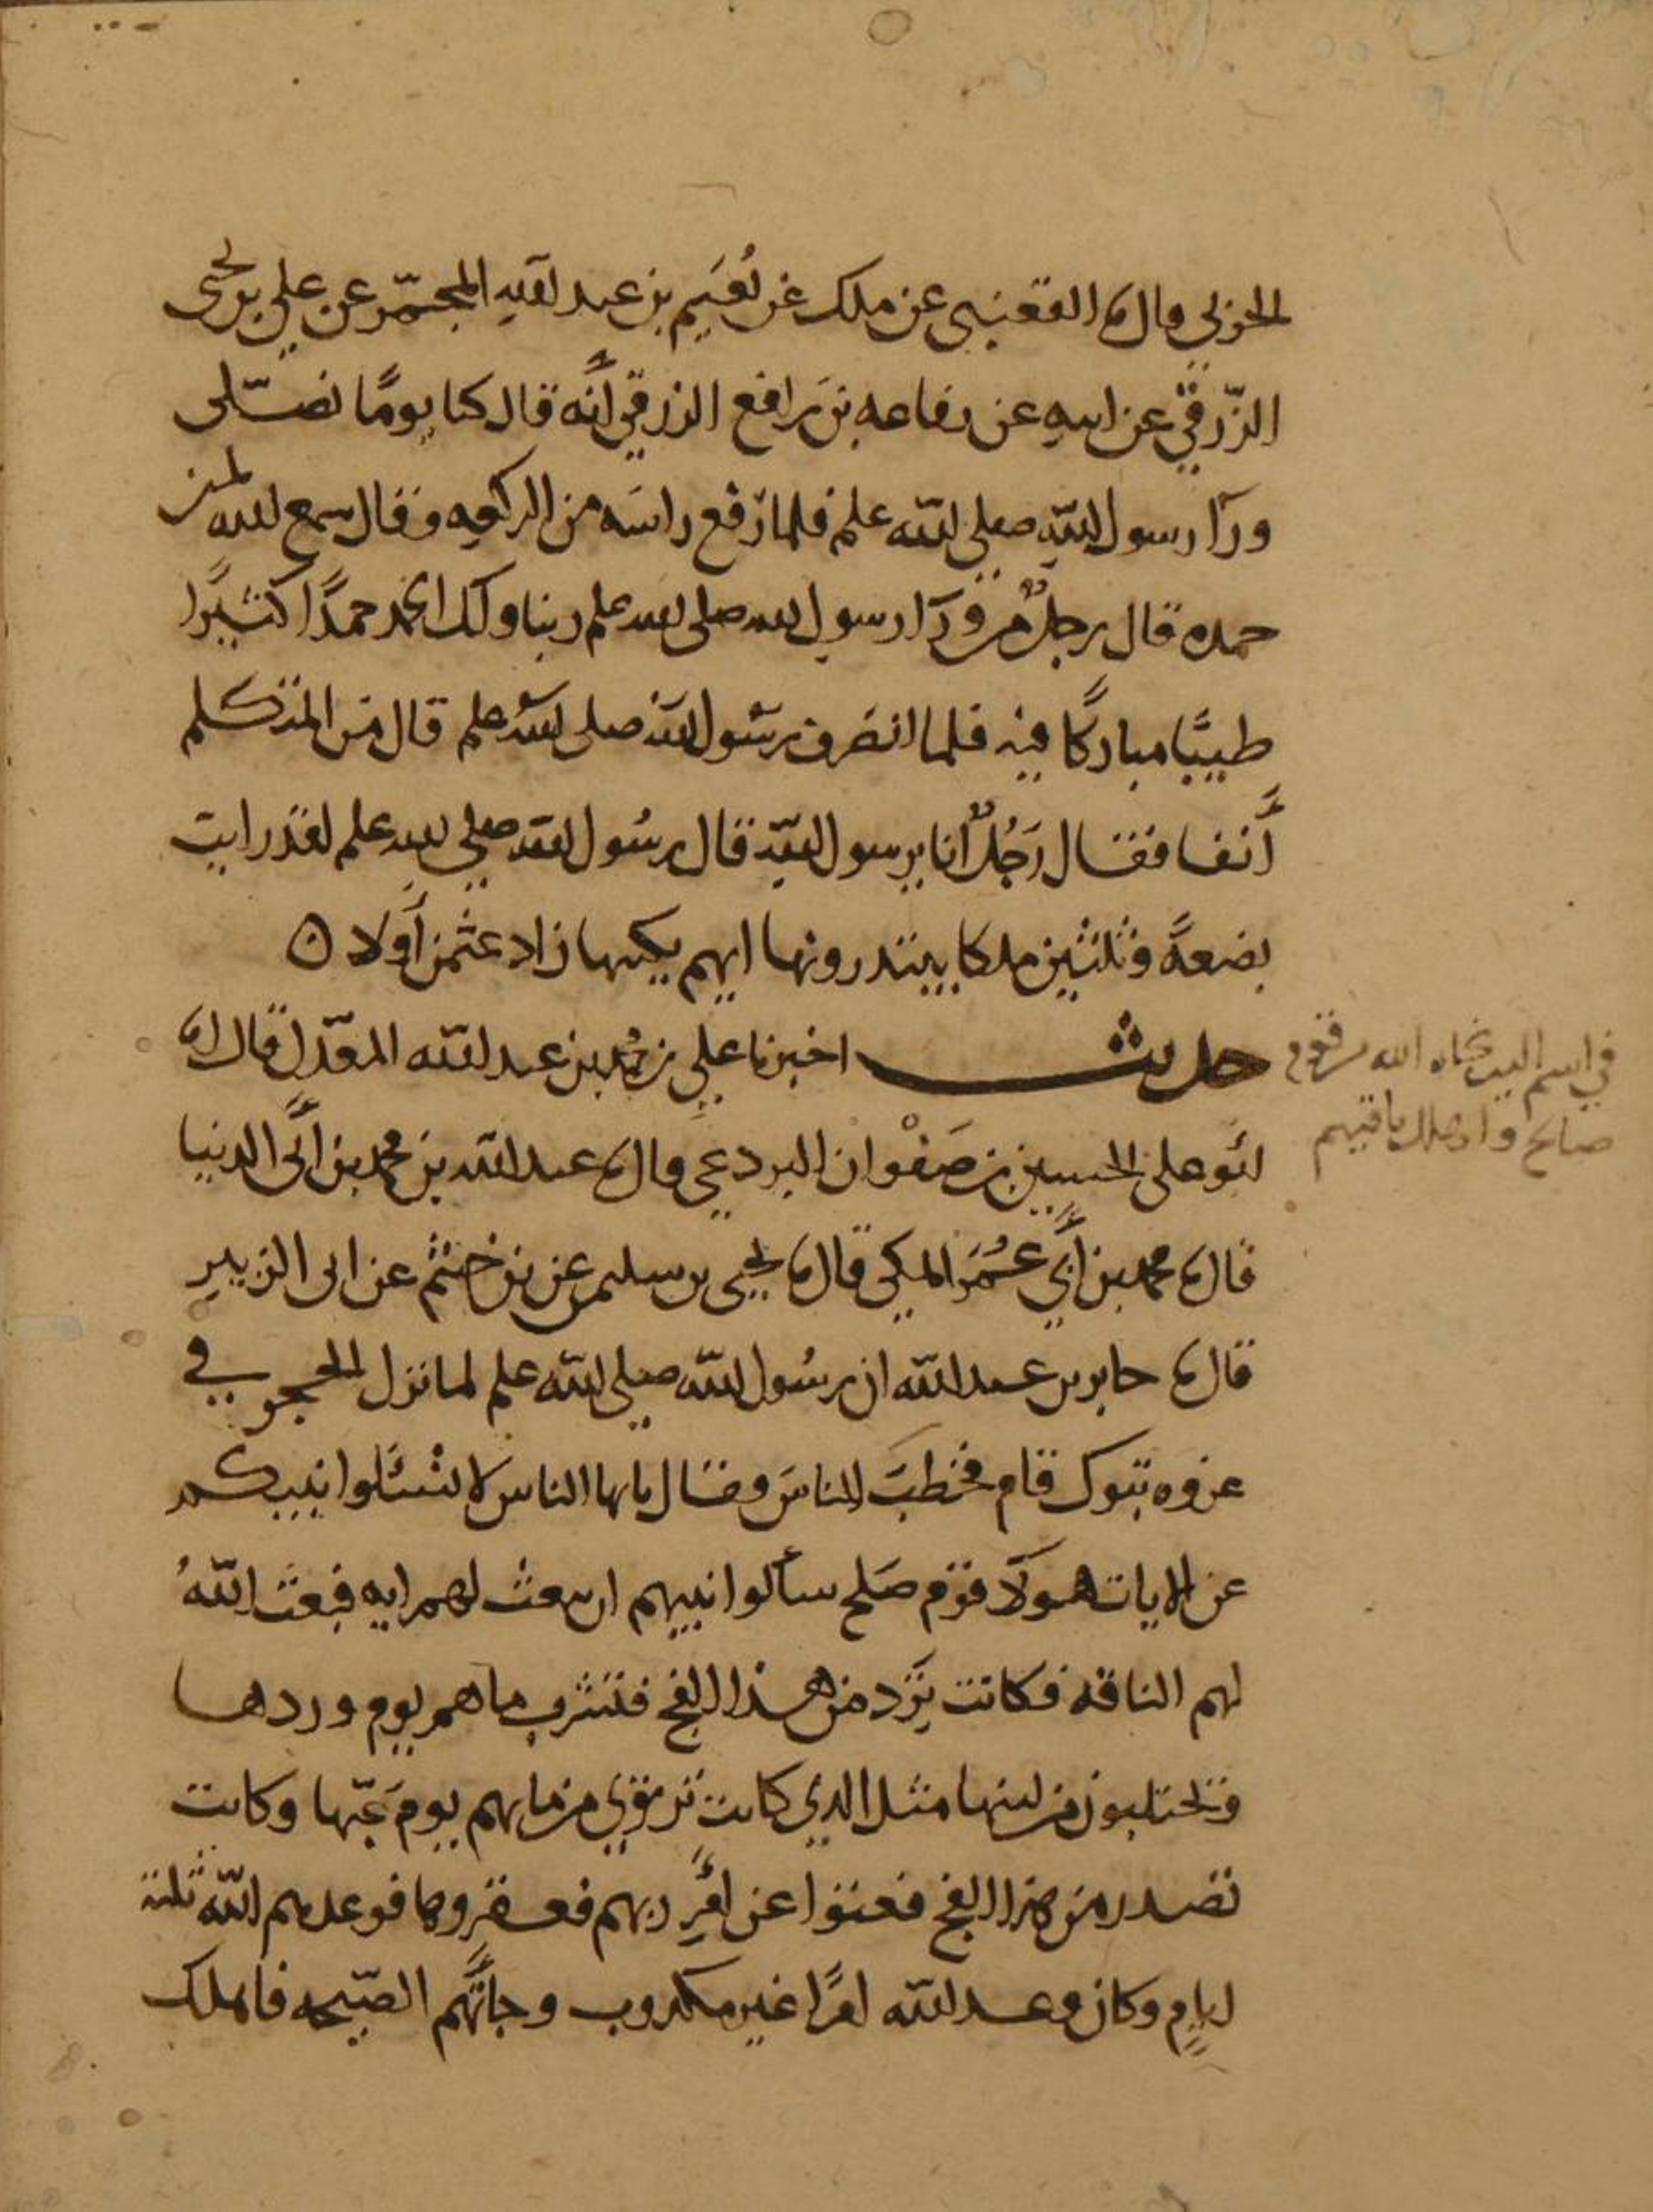 الحربي قال نا القعنبي عن ملك عن نُعَيم بن عبد اللهِ المجمّر عن علي بن يحيى
الزّرقيّ عن ابيهِ عن رفاعه بن رافع الزرقي أنّه قال كنا يومًا نصلّى
ورآ رسول اللهِ صلى الله علم فلما رَفع راسَه من الركعه وقال سمع الله لمن
حمده قال رجلٌ من ورآ رسول الله صلى الله علم ربنا ولك الحمد حمدًا كثيرًا
طيبًا مباركًا فيه فلما انصَرف رسُول الله صلى الله علم قال من المتكلم
أَنفا فقال رَجُلٌ انا يرسول اللهِ قال رسُول الله صلى الله علم لقد رايت
بضعةً وثلثين ملكا يبتدرونها ايهم يكتبها زاد عثمن أَولا ن
حديث اخبرنا علي بن محمد بن عبد الله المعدّل قال انا
ابُو علي الحسين بن صَفْوان البردعي قال نا عبد الله بن محمد بن أبي الدنيا
قال نا محمد بن أبي عُمَر المكي قال نا يحيى بن سليم عن بن خثيم عن ابى الزبير
قال نا جابر بن عبد الله ان رسُول الله صلى الله علم لما نزل الحجر في
غزوه تبوك قام فخطبَ الناسَ وقال يايها الناس لا تسَئلوا نبيكم
عن الايات هولآ قوم صَلح سألوا نبيهم ان يبعث لهم ايه فبعث اللهُ
لهم الناقه فكانت تَرِد من هذا الفج فتشرب ماهم يوم وردها
وتحتلبون من لبنها مثل الذي كانت ترتوي من مايهم يومَ غبّها وكانت
تصدر من هذا الفج فعتوا عن امرِ ربهم فعقروها فوعدهم الله ثلثة
ايامٍ وكان وعد الله امرًا غير مكذوب وجاتهم الصّيحه فاهلك
في اسم الدى نجاه الله من قوم
صالح واهلك باقيهم